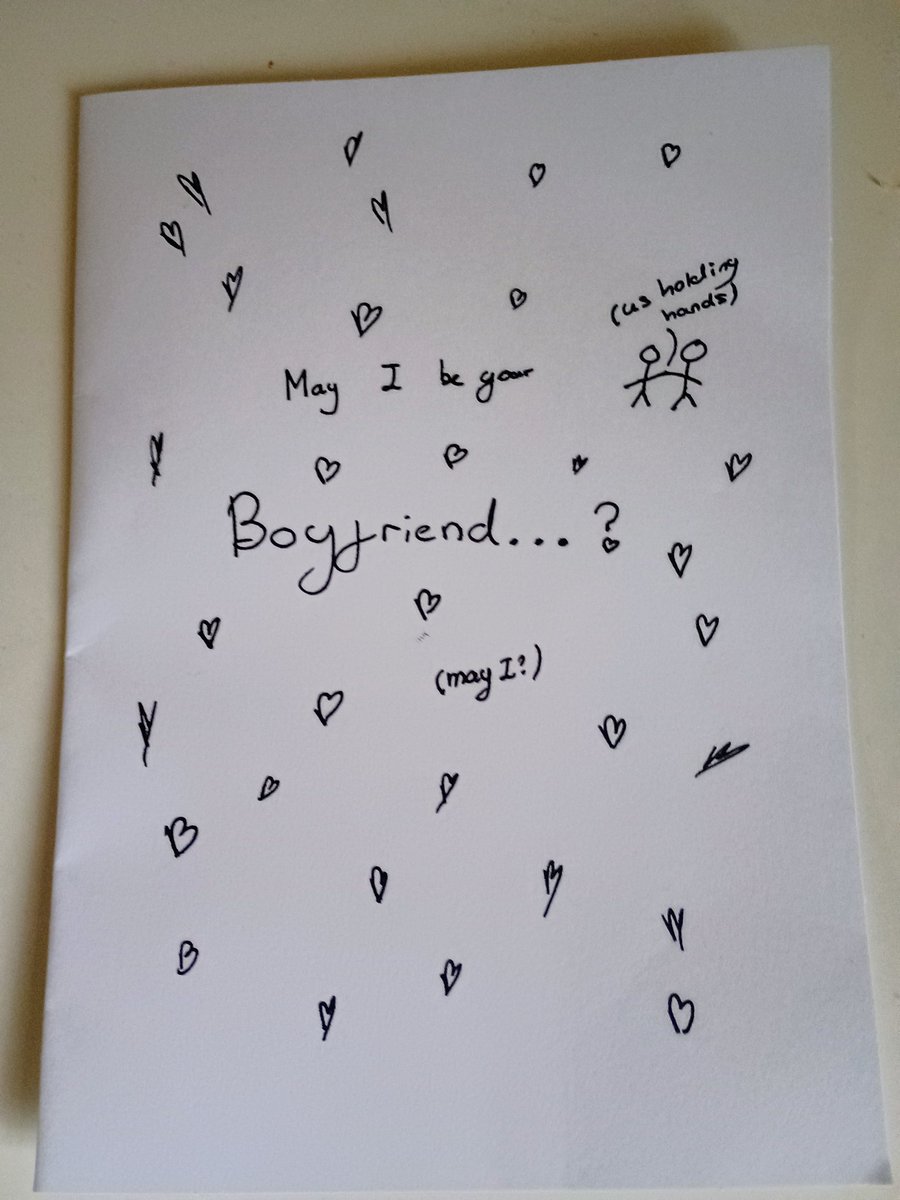 (us holding
hands)
May I be your
Boyfriend...?
(may I?)